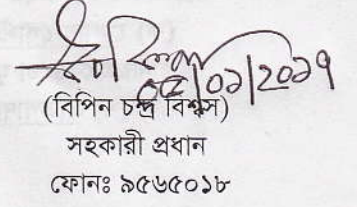 ০৫/০১/২০১৭
(বিপিন চন্দ্র বিশ্বাস)
সহকারী প্রধান
ফোনঃ ৯৫৬৫০১৮